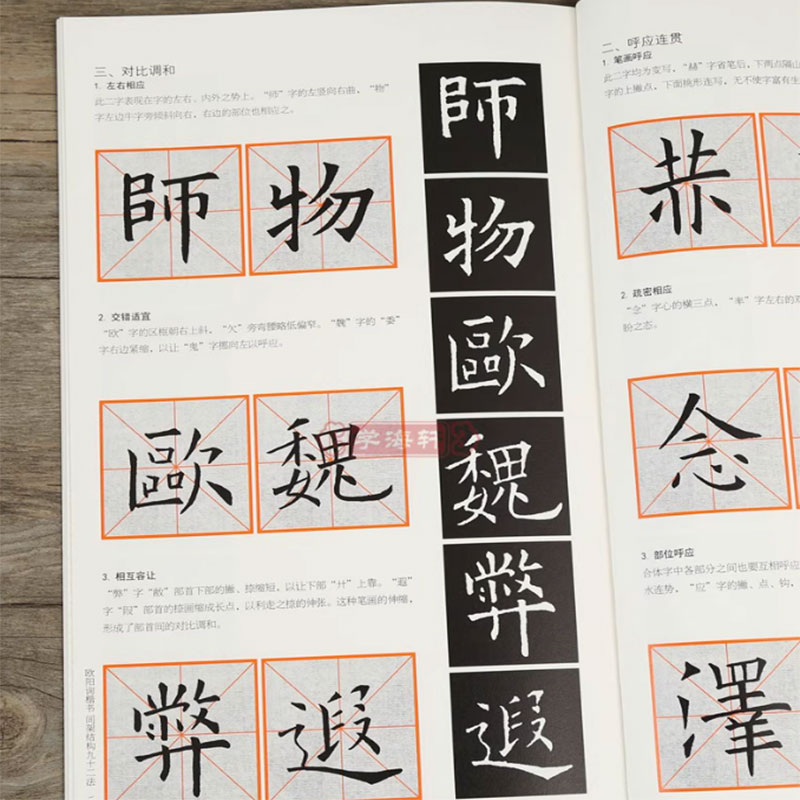 三、对比调和
1. 左右相应
此二字表现在字的左右、内外之势上。“师”字的左竖向右曲，“物”
字左边牛字旁倾斜向右，右边的部位也相应之。
師 物
2. 交错适宜
“欧”字的区框朝右上斜，“欠”旁弯腰略低偏窄。“魏”字的“委”
字右边紧缩，以让“鬼”字挪向左以呼应。
歐 魏
学海轩
3. 相互容让
“弊”字“敝”部首下部的撇、捺缩短，以让下部“廾”上靠。“遐”
字“叚”部首的捺画缩成长点，以利走之捺的伸张。这种笔画的伸缩，
形成了部首间的对比调和。
弊 遐
欧阳询楷书 间架结构九十二法
師
物
歐
魏
弊
遐
二、呼应连贯
1. 笔画呼应
此二字均为变写，“赫”字省笔后，下两点隔山
字的上撇点，下面桃形连写，无不使字富有生
2. 疏密相应
“念”字心的横三点，“率”字左右的双
盼之态。
念
3. 部位呼应
合体字中各部分之间也要互相呼应
水连势，“应”字的撇、点、钩，
澤